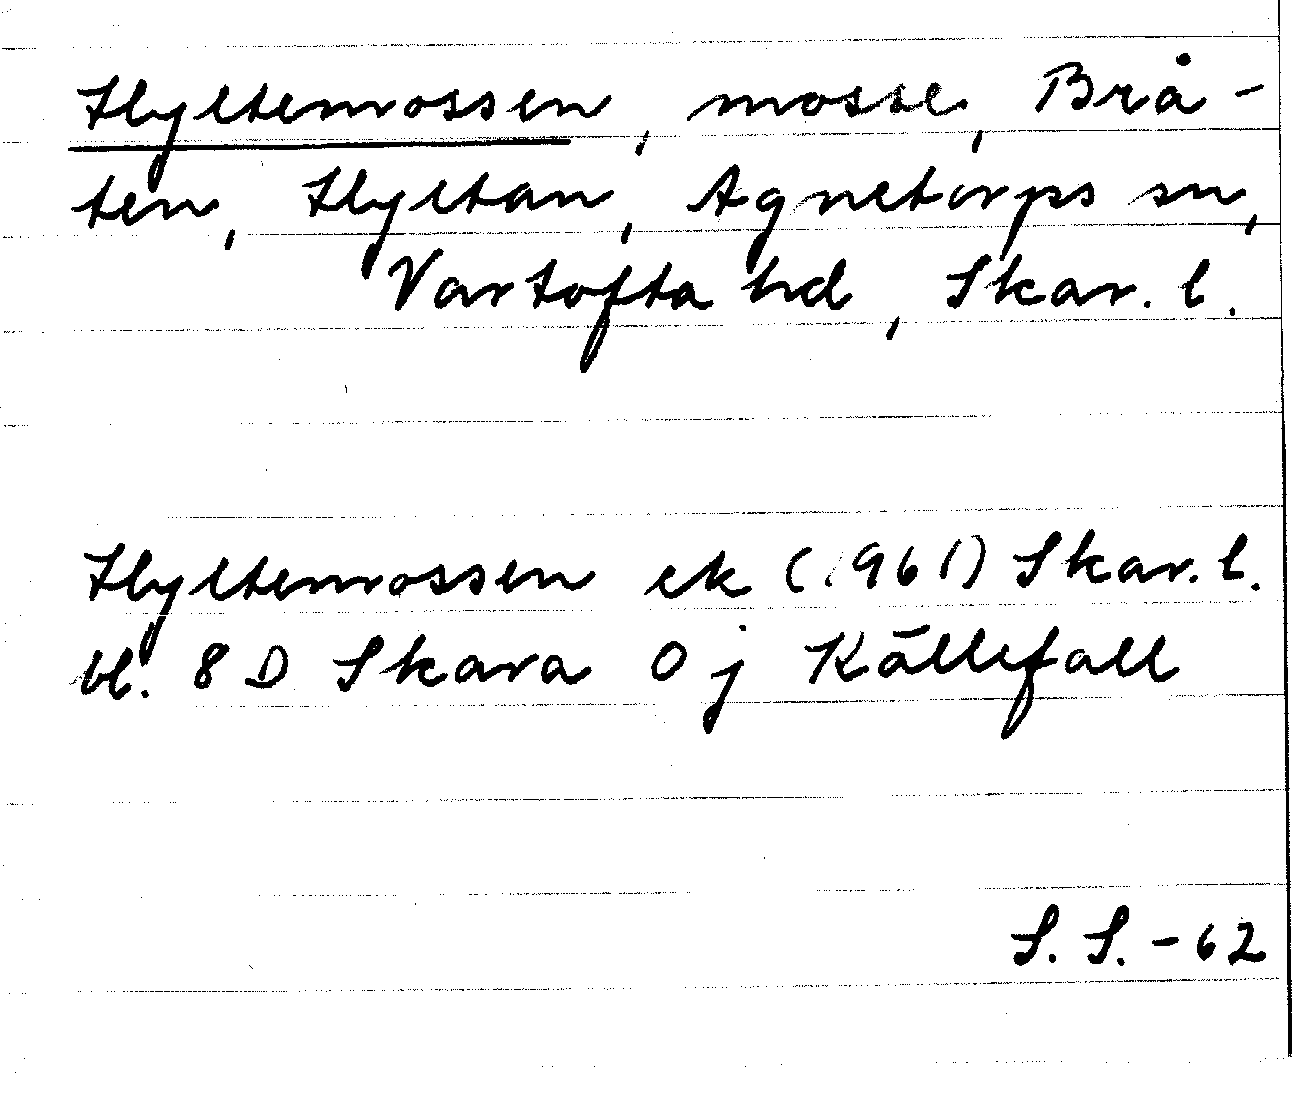 Hyltemossen, mosse, Brå-
ten, Hyltan, Agnetorps sn,
Vartofta hd, Skar. l.
Hyltemossen ek (1961) Skar. l.
bl. 8 D Skara 0 j Källefall
S. S. - 62